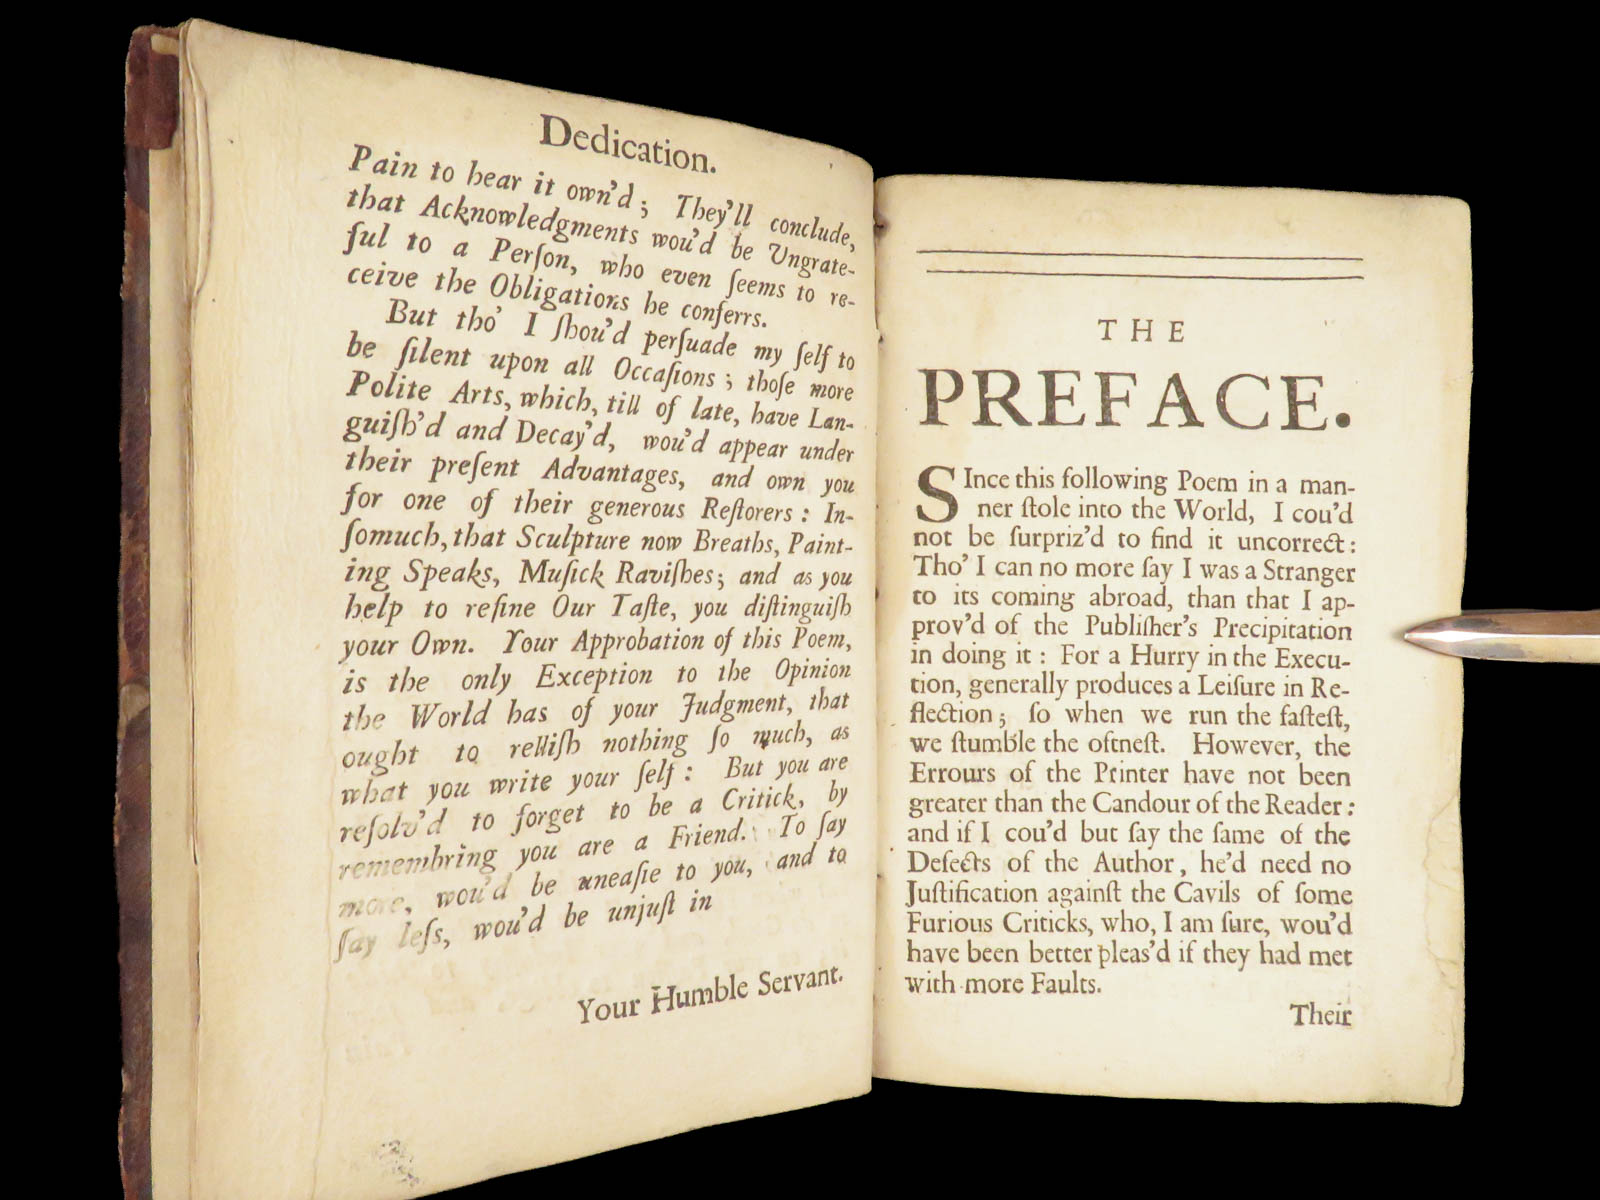 Dedication.
Pain to hear it own'd; They'll conclude,
that Acknowledgments wou'd be Ungrate-
ful to a Perſon, who even ſeems to re-
ceive the Obligations he conferrs.
But tho' I ſhou'd perſuade my ſelf to
be ſilent upon all Occaſions; thoſe more
Polite Arts, which, till of late, have Lan-
guiſh'd and Decay'd, wou'd appear under
their preſent Advantages, and own you
for one of their generous Reſtorers: In-
ſomuch, that Sculpture now Breaths, Paint-
ing Speaks, Muſick Raviſhes; and as you
help to refine Our Taſte, you diſtinguiſh
your Own. Your Approbation of this Poem,
is the only Exception to the Opinion
the World has of your Judgment, that
ought to relliſh nothing ſo much, as
what you write your ſelf: But you are
reſolv'd to forget to be a Critick, by
remembring you are a Friend. To ſay
more, wou'd be uneaſie to you, and to
ſay leſs, wou'd be unjuſt in
Your Humble Servant.
THE
PREFACE.
SInce this following Poem in a man-
ner ſtole into the World, I cou'd
not be ſurpriz'd to find it uncorrect:
Tho' I can no more ſay I was a Stranger
to its coming abroad, than that I ap-
prov'd of the Publiſher's Precipitation
in doing it: For a Hurry in the Execu-
tion, generally produces a Leiſure in Re-
flection; ſo when we run the faſteſt,
we ſtumble the oftneſt. However, the
Errours of the Printer have not been
greater than the Candour of the Reader:
and if I cou'd but ſay the ſame of the
Defects of the Author, he'd need no
Juſtification againſt the Cavils of ſome
Furious Criticks, who, I am ſure, wou'd
have been better pleas'd if they had met
with more Faults.
Their